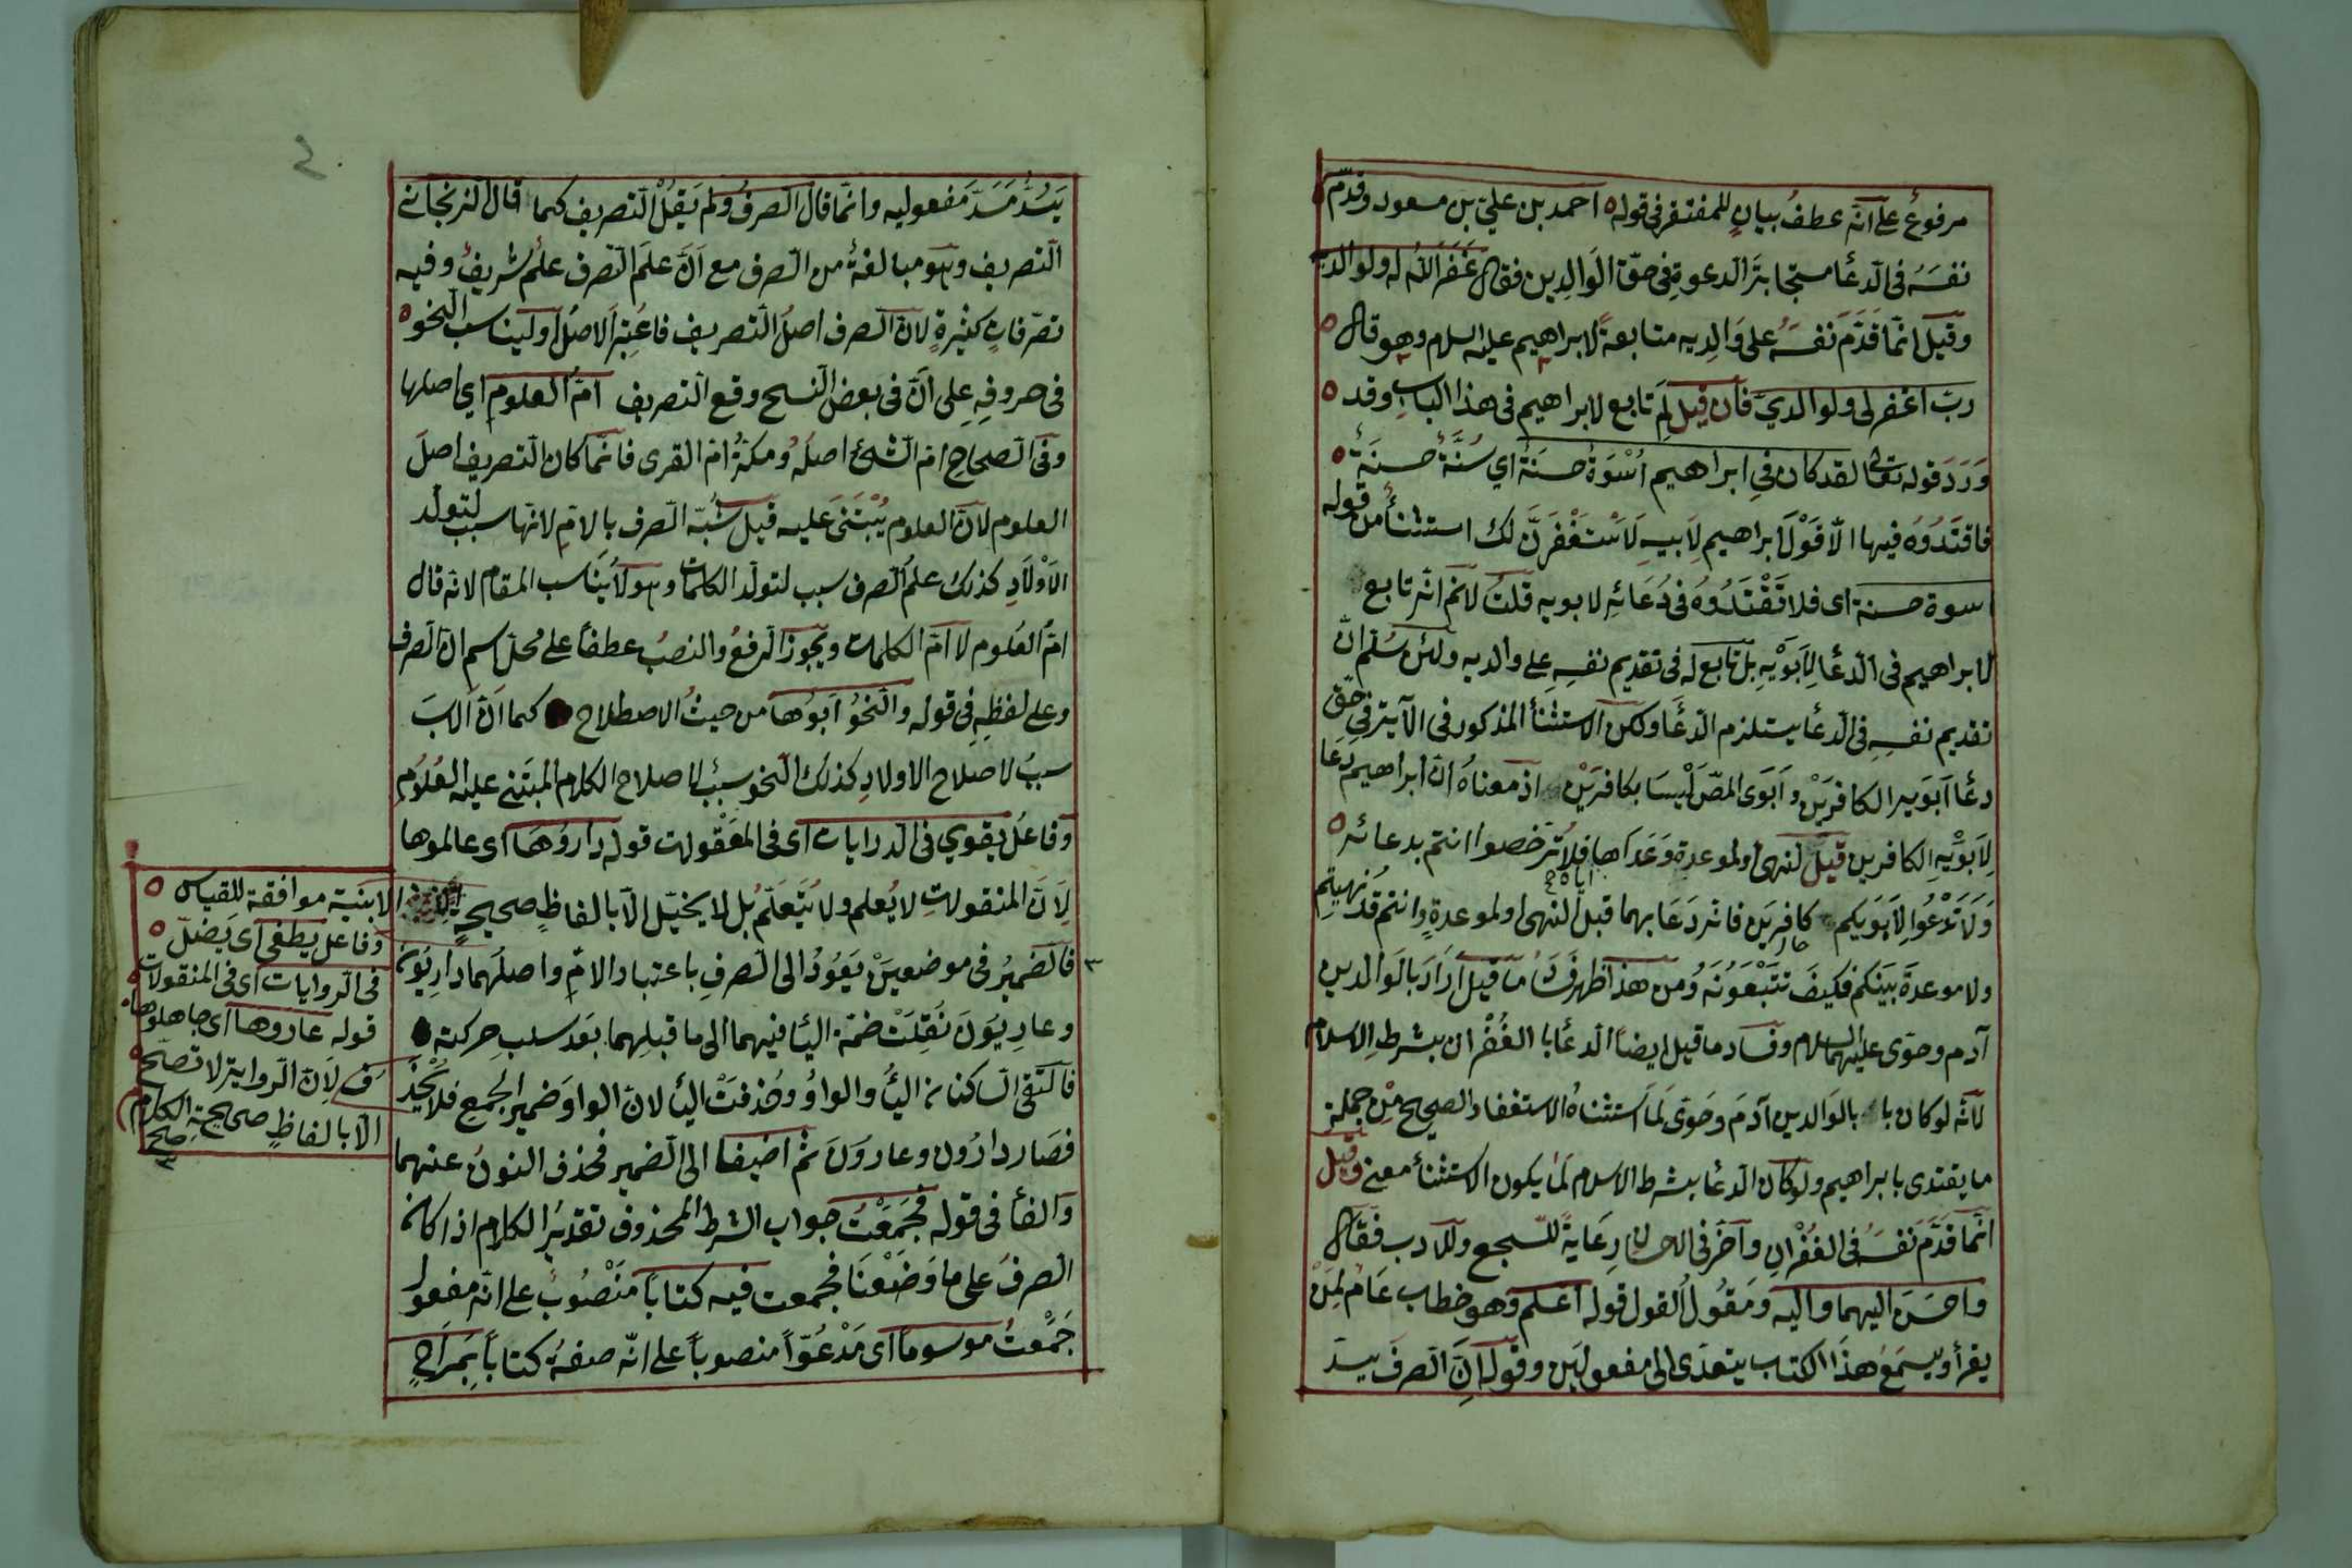 مرفوعٌ على انّه عطفُ بيانٍ للمفتقر فى قوله احمد بن علي بن مسعود وقدّم
نفسَهُ فى الدعأ مستجابة الدعوةِ فى حقّ الوَالِدين فقال غَفَرَ اللّٰه له ولوالديه
وقيل انّما قَدّمَ نفسَهُ على وَالِديه متابعةً لابراهيم عليه السلام وهو قال
ربّ اغفر لى ولوالديّ فان قيل لِمَ تابع لابراهيم فى هذا الباب وقد
وَرَدَ قوله تعالى لقد كان فى ابراهيم اُسْوَةٌ حسَنَةٌ اي سُنَّةٌ حسنَةٌ
فاقتَدُوهُ فيها الّا قَوْلَ ابراهيم لِاَبيهِ لَاَسْتَغْفِرَنَّ لك استثنأ من قوله
اسوة حسنة اى فلا تَقْتَدُوهُ فى دُعَائِهِ لابويه قلتُ لا نم انّه تابع
لابراهيم فى الدّعأ لِاَبَوَيْهِ بل تابع له فى تقديم نفسِهِ على والديه ولئن سُلّم انّ
تقديم نفسِهِ فى الدعأ يستلزم الدّعَأ ولكن الاستثنأ المذكور فى الآية فى حقّ
دعأ اَبَوَيه الكافرَيْن و اَبَوَى المصّ لَيْسَا بكافرَيْن اذ معناهُ انّ ابراهيم دعا
لِاَبَوَيْهِ الكافرين قبل النهى اولموعدة وَعَدَاها فلا تُرَخّصوا انتم بدعائه
وَلَا تَدْعُوا لِاَبَوَيكم كافرِيَن فانه دَعَا بهما قبل النهى او لموعدةٍ وانتم قد نهيتم
ولا موعدةَ بَيْنَكم فكيفَ تتّبعُونَهُ وَمن هذا ظهر فَسَادُ ما قيل اَرَادَ بالوالدين
آدم وحوّى عليهما السلام وفساد ما قيل ايضاً الدعأ بالغُفْران بشرط الاسلام
لانّه لو كان بالوَالدين آدمَ وحَوّى لَمَا استثناهُ الاستغفار الصحيح مِنْ جملة
ما يقتدى بابراهيم ولو كان الدعأ بشرط الاسلام لَمَا يكون الاستثنأ معنى وقيل
انّما قَدَّمَ نَفسَهُ فى الغُفْرانِ وآخَرَ فى الاحسان رِعَايةً للسّجع وللادب فقال
واحسَنَ اليهما واليه ومَقُولُ القول قوله اعلم وهو خطاب عَامّ لِمَنْ
يقرأ ويسمَعُ هذَا الكتاب يتعدّى الى مفعولَيْن وقوله اِنَّ الصرفَ يسدّ
٤
يَسُدُّ مَسَدَّ مَفعوليه وانّما قال الصرفُ ولم يَقُلْ التصريف كما قال الزنجانى
التصريف وهو مبالغةٌ من الصرف مع اَنّ علمَ الصرف علمٌ شريفٌ وفيه
تصرّفاتٍ كثيرةٍ لانّ الصرف اصلُ التصريف فاعُتِبرَ الاصلُ او ليناسب النحو
فى حروفِهِ على اَنّ فى بعض النسخ وقع التصريف امّ العلوم اي اصلها
وفى الصحاح امّ الشئ اصلُهُ ومكةُ امّ القرى فانّما كان التصريف اصلَ
العلوم لانّ العلوم يُبْتَنَى عليه قيل شُبّه الصرف بالامّ لانّها سبب لتولّد
الاَوْلَادِ كذلك علمُ الصرف سبب لتولّد الكلمات وهو لا يُناسب المقام لانّه قال
امّ العُلوم لا امّ الكلمات ويجوز الرفعُ والنصبُ عطفاً على محل اسم انّ الصرف
وعلى لفظِهِ فى قوله والنّحُو اَبُوها من حيثُ الاصطلاح كما اَنّ الابَ
سببُ لاصلاح الاولادِ كذلك النحو سببٌ لاصلاح الكلام المبتنى عليه العُلُوم
وفاعلُ يقوي فى الدرايات اى فى المَعْقولات قوله دَاروُهَا اى عالموها
لِاَنّ المنقولاتِ لا يُعلم ولا يُتَعَلّم بل لا يخيّل الّا بالفاظٍ صحيحةِ
فالضميرُ فى موضعيَنْ يَعُودُ الى الصرفِ باعتبار الامّ واصلُهما دارِيُونَ
وعارِيُونَ نُقِلَتْ ضمّة اليأ فيهما الى ما قبلهما بَعَد سلبِ حركته
فالتقى الساكنان اليأُ والواوُ وحُذفتْ اليأ لانّ الواوَ ضمير الجمع فلا يُحْذَ
فصَار دارُون وعارُونَ ثم اضيفا الى الضمير فحذف النونُ عنهما
والفأ فى قوله فجَمَعْتُ جواب الشرط المحذوف تقديرُ الكلام اذا كان
الصرفُ على ما وَضَعْنَا فجمعت فيه كتاباً مَنْصُوبٌ على انّه مفعول
جَمَعْتُ موسوماً اى مَدْعُوّاً منصوباً على انّه صفةُ كتاباً بمَرَاحِ
الابنية موافقة للقياس
وفاعل يطغى اى يَضلّ
فى الروايات اى فى المنقولات
قوله عاروها اى جاهلوها
ف لِاَنّ الرواية لا تصحّ
الّا بالفاظٍ صحيحة الكلام
صح